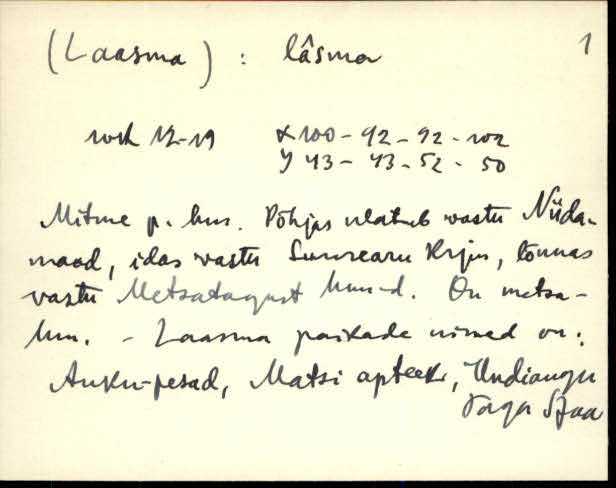 (Laasma) : lâsma 1
wsk 12-19 X 100 - 92 - 92 - 102
Y 43 - 43 - 52 - 50
Mitme p. hm. Põhjas ulatub vastu Niida-
maad, idas vastu Suurearu Krjm, lõunas
vastu Metsatagust hm-d. On metsa-
hm. - Laasma paikade nimed on:
Auku-pesad, Matsi apteek, Undiangu
Taga